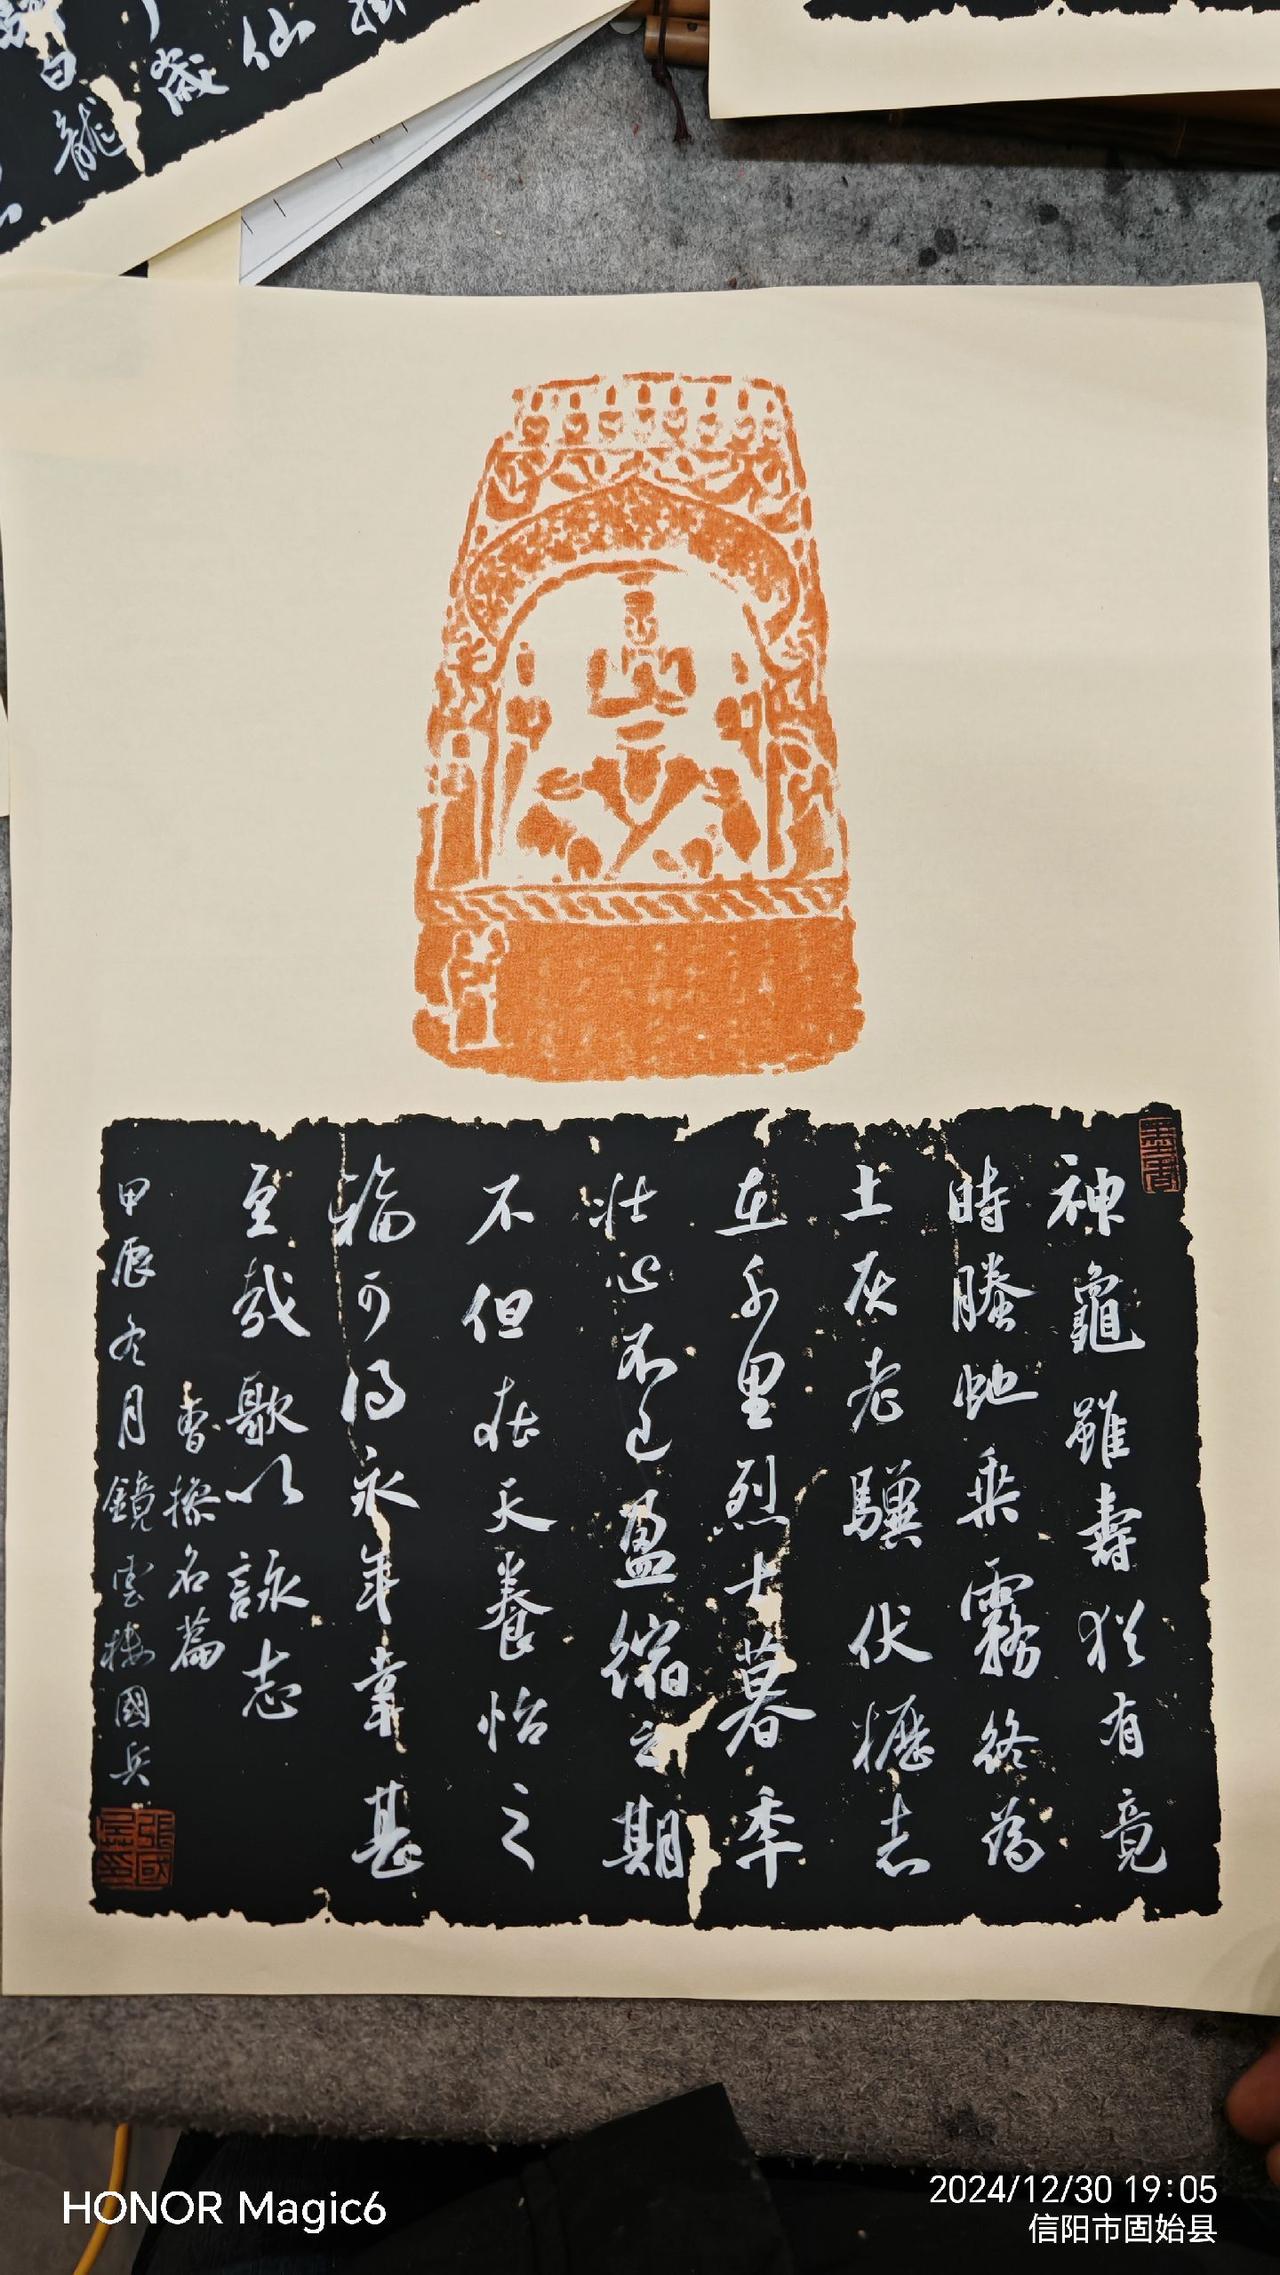 仙
歲
白龍
神龜雖壽猶有竟
時螣虵乘霧終為
土灰老驥伏櫪志
在千里烈士暮秊
壯心不已盈縮之期
不但在天養怡之
福可得永年幸甚
至哉歌以詠志
曹操名篇
甲辰冬月鏡雲樓國兵
張國兵印
HONOR Magic6
2024/12/30 19:05
信阳市固始县